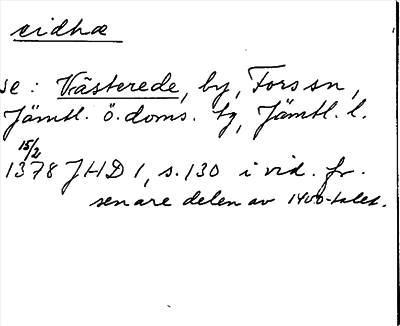 eidhæ
se: Västerede, by, Fors sn,
Jämtl. ö. doms. tg, Jämtl. l.
15/2
1378 JHD 1, s. 130 i vid. fr.
senare delen av 1400-talet.